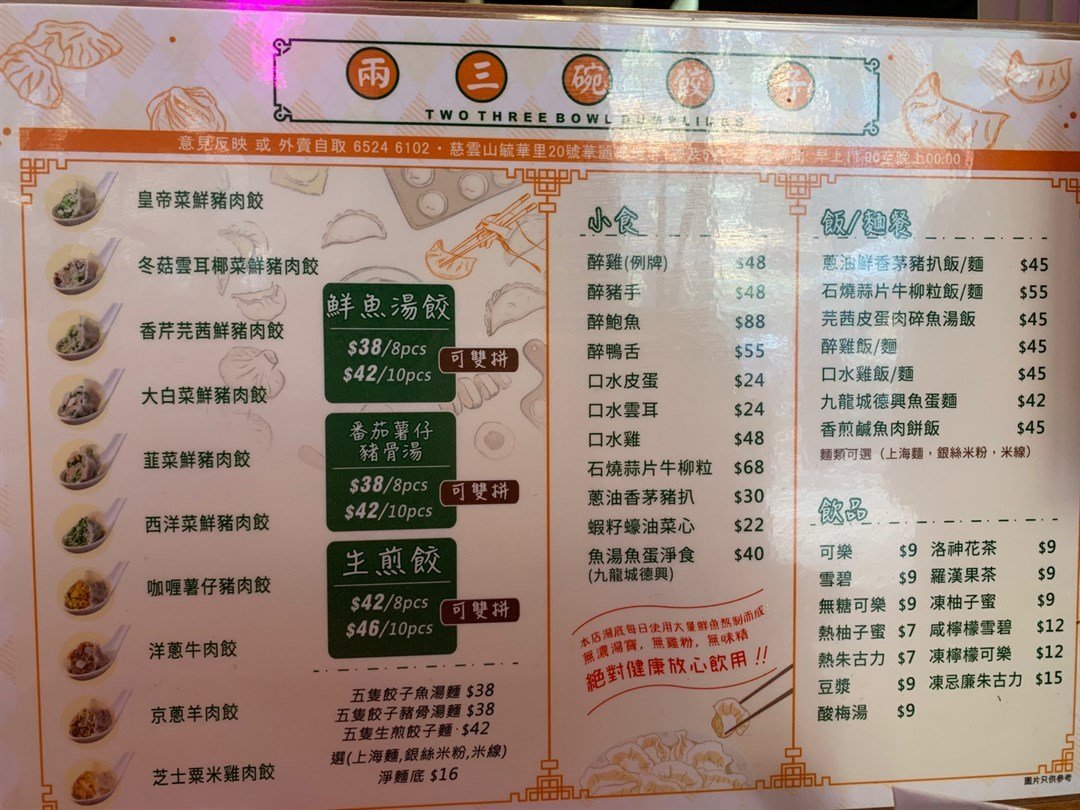 兩三碗餃子
TWO THREE BOWL DUMPLINGS
意見反映 或 外賣自取 6524 6102・慈雲山毓華里20號華
皇帝菜鮮豬肉餃
冬菇雲耳椰菜鮮豬肉餃
香芹芫茜鮮豬肉餃
大白菜鮮豬肉餃
韮菜鮮豬肉餃
西洋菜鮮豬肉餃
咖喱薯仔豬肉餃
洋蔥牛肉餃
京蔥羊肉餃
芝士粟米雞肉餃
鮮魚湯餃
$38/8pcs
$42/10pcs
可雙拼
番茄薯仔
豬骨湯
$38/8pcs
$42/10pcs
可雙拼
生煎餃
$42/8pcs
$46/10pcs
可雙拼
五隻餃子魚湯麵 $38
五隻餃子豬骨湯麵 $38
五隻生煎餃子麵 $42
選(上海麵,銀絲米粉,米線)
淨麵底 $16
小食
醉雞(例牌) $48
醉豬手 $48
醉鮑魚 $88
醉鴨舌 $55
口水皮蛋 $24
口水雲耳 $24
口水雞 $48
石燒蒜片牛柳粒 $68
蔥油香茅豬扒 $30
蝦籽蠔油菜心 $22
魚湯魚蛋淨食 $40
(九龍城德興)
本店湯底每日使用大量鮮魚熬制而成
無濃湯寶，無雞粉，無味精
絕對健康放心飲用 !!
飯/麵餐
蔥油鮮香茅豬扒飯/麵 $45
石燒蒜片牛柳粒飯/麵 $55
芫茜皮蛋肉碎魚湯飯 $45
醉雞飯/麵 $45
口水雞飯/麵 $45
九龍城德興魚蛋麵 $42
香煎鹹魚肉餅飯 $45
麵類可選（上海麵，銀絲米粉，米線）
飲品
可樂 $9 洛神花茶 $9
雪碧 $9 羅漢果茶 $9
無糖可樂 $9 凍柚子蜜 $9
熱柚子蜜 $7 咸檸檬雪碧 $12
熱朱古力 $7 凍檸檬可樂 $12
豆漿 $9 凍忌廉朱古力 $15
酸梅湯 $9
圖片只供參考